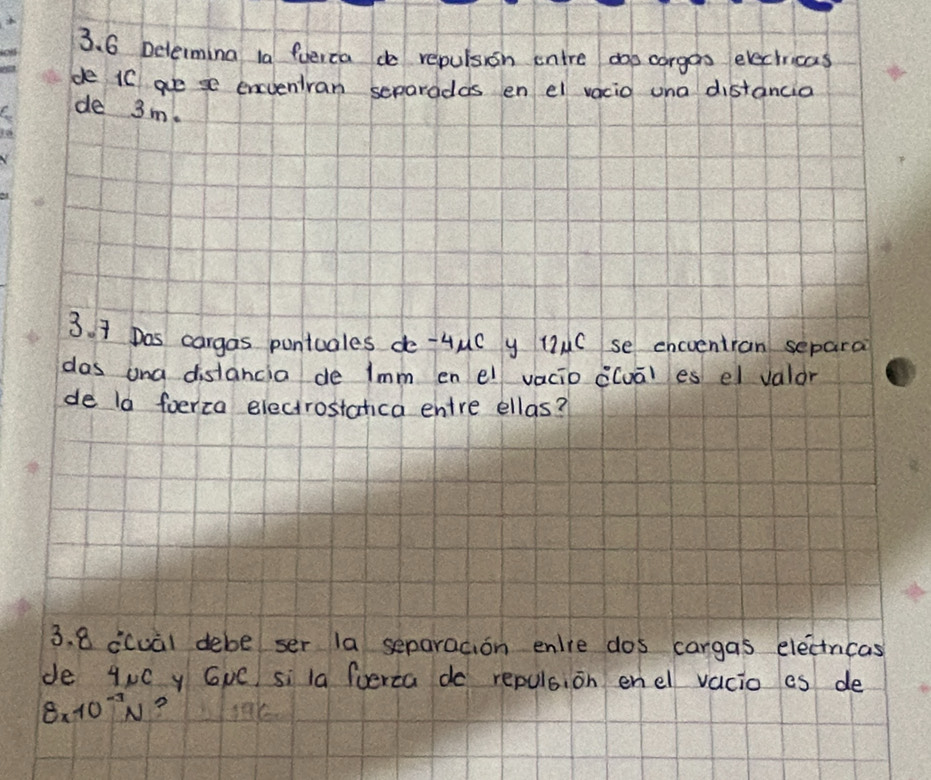 3.6 Determina la fuerza de repulsión entre dos cargas electricas
de 1C que se encuentran separadas en el vacio una distancia
de 3m.
3.7 Dos cargas puntuales de -4μC y 12μC se encuentran separa
das una distancia de 1mm en el vacio ¿Cuál es el valor
de la fuerza electrostatica entre ellas?
3.8 ¿Cuál debe ser la separación entre dos cargas eléctricas
de 4μC y 6μC, si la fuerza de repulsión en el vacio es de
8x10⁻³N?